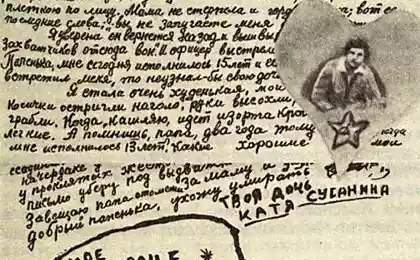 плеткою по лицу. Мама не стерпела и гордо
последние слова: "вы не запугаете меня
Я уверена он вернется назад и выш
захватчиков отсюда вон" И офицер выстрел
Папенька, мне сегодня исполнилось 15 лет и ес
встретил меня, то неузнал-бы свою доч
Я стала очень худенькая, мои
Косички остригли наголо, руки высохли,
грабли. Когда, кашляю, идет изорта, кро
легкие. А помнишь, папа, два года тому
мне исполнилось 13 лет? Какие хорошие мои
у проклятых
письмо уберу под
Завещаю папа отомсти за маму и
добрый папенька, ухожу умирать
ТВОЯ ДОЧЬ
КАТЯ СУСАНИНА